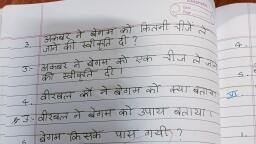 3. अकबर ने बेगम को कितनी चीजें ले
जाने की स्वीकृति दी ?
उ- अकबर ने बेगम को एक चीज ले जाने
की स्वीकृति दी ।
4. बीरबल को ने बेगम को क्या बताया
उ- बीरबल ने बेगम को उपाय बताया ।
5 बेगम किसके पास गयी ?